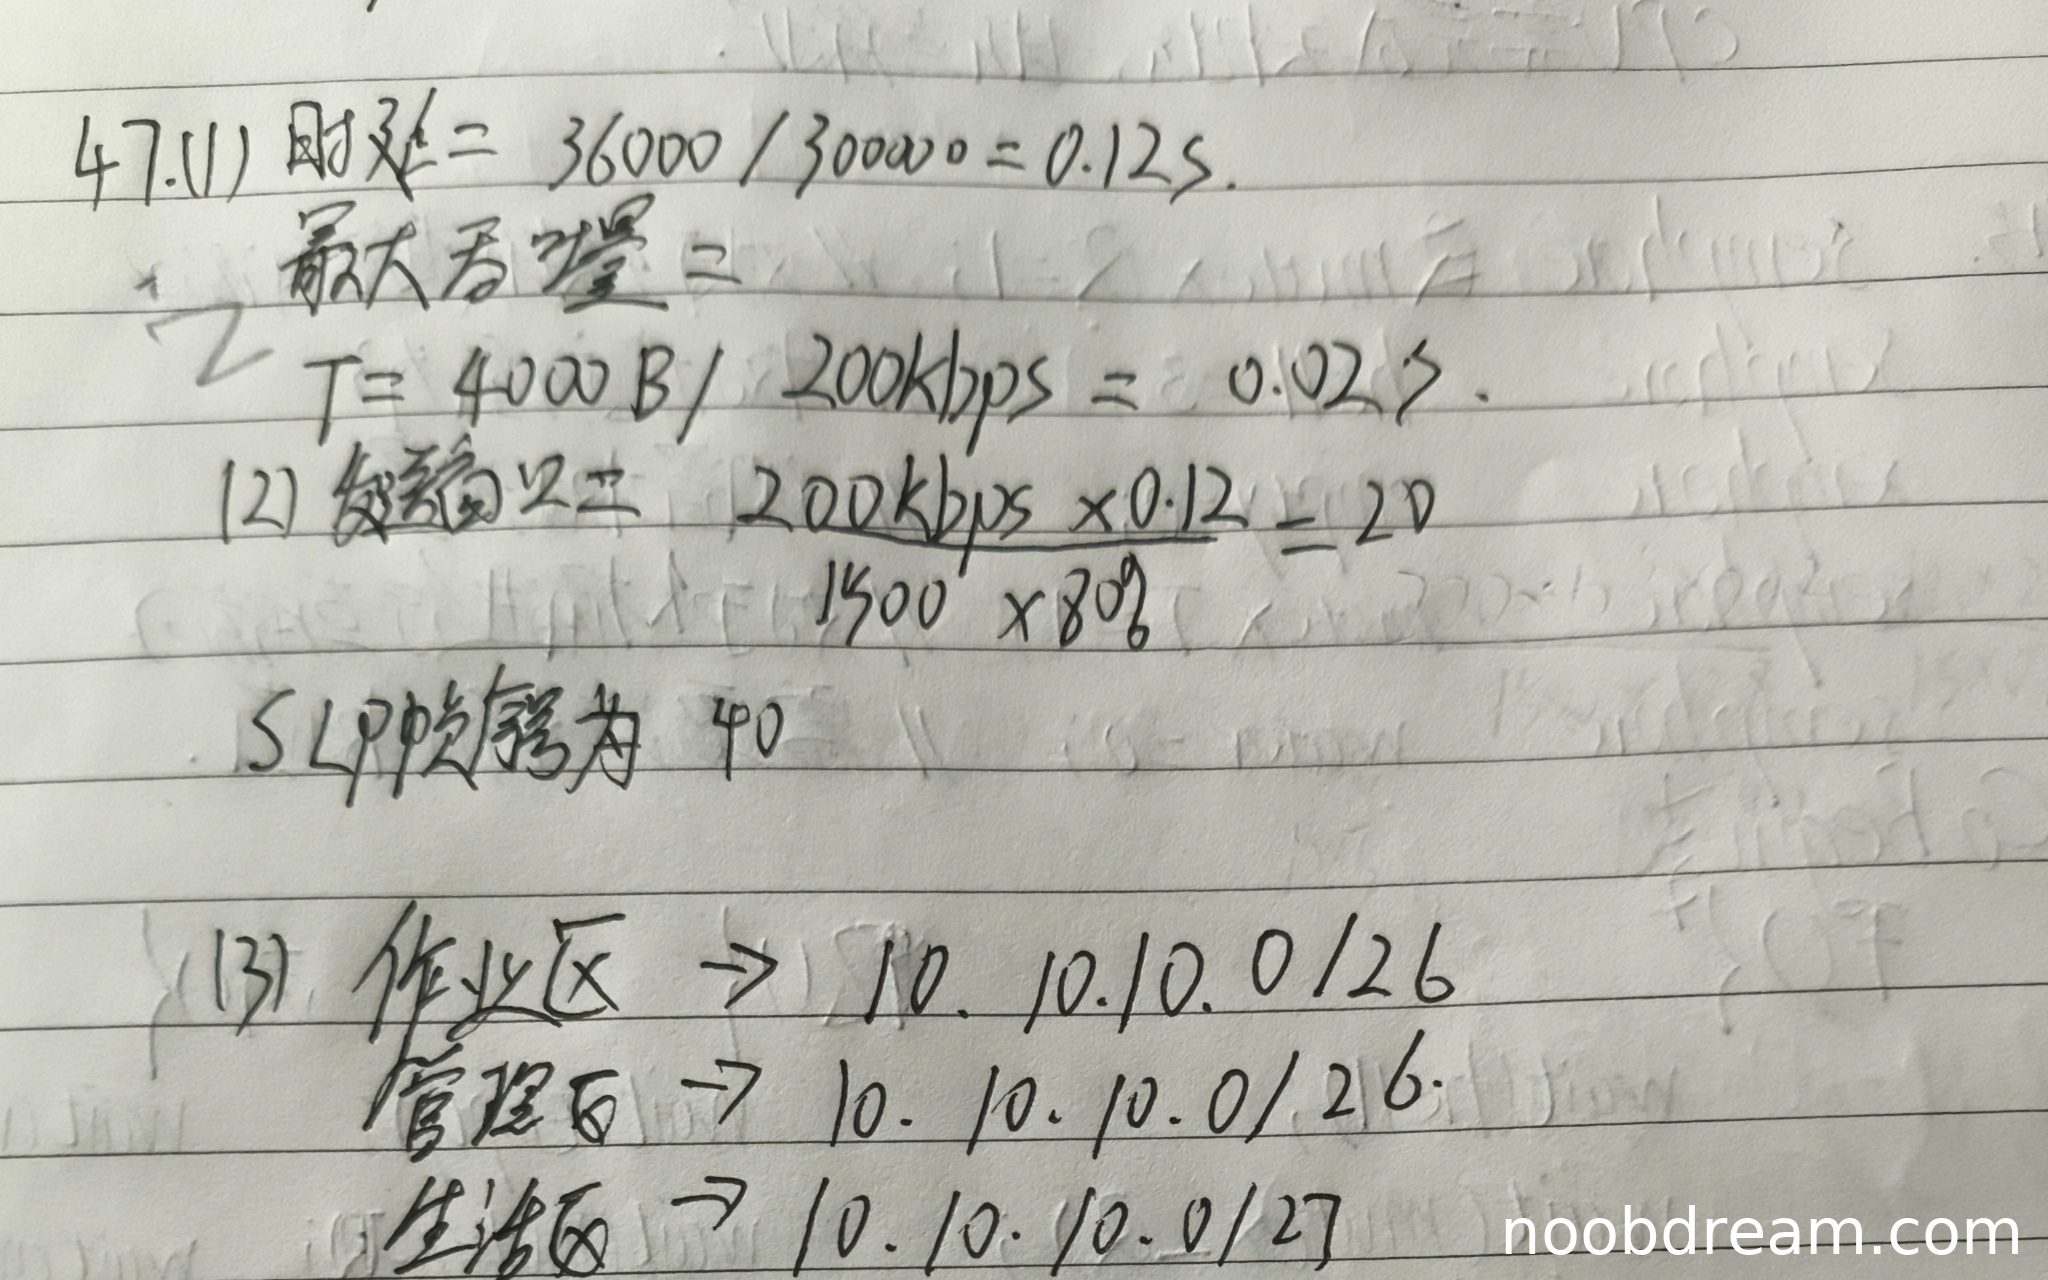 47.(1) 时延 = 36000 / 300000 = 0.12s.
最大吞吐量 =
T = 4000 B / 200kbps = 0.02s.
(2) 发送窗口 = 200kbps × 0.12 = 20
1500 × 80%
SLP帧序号为 40
(3) 作业区 → 10. 10.10. 0 /26
管理区 → 10. 10. 10. 0 / 26.
生活区 → 10. 10. 10. 0 / 27
noobdream.com